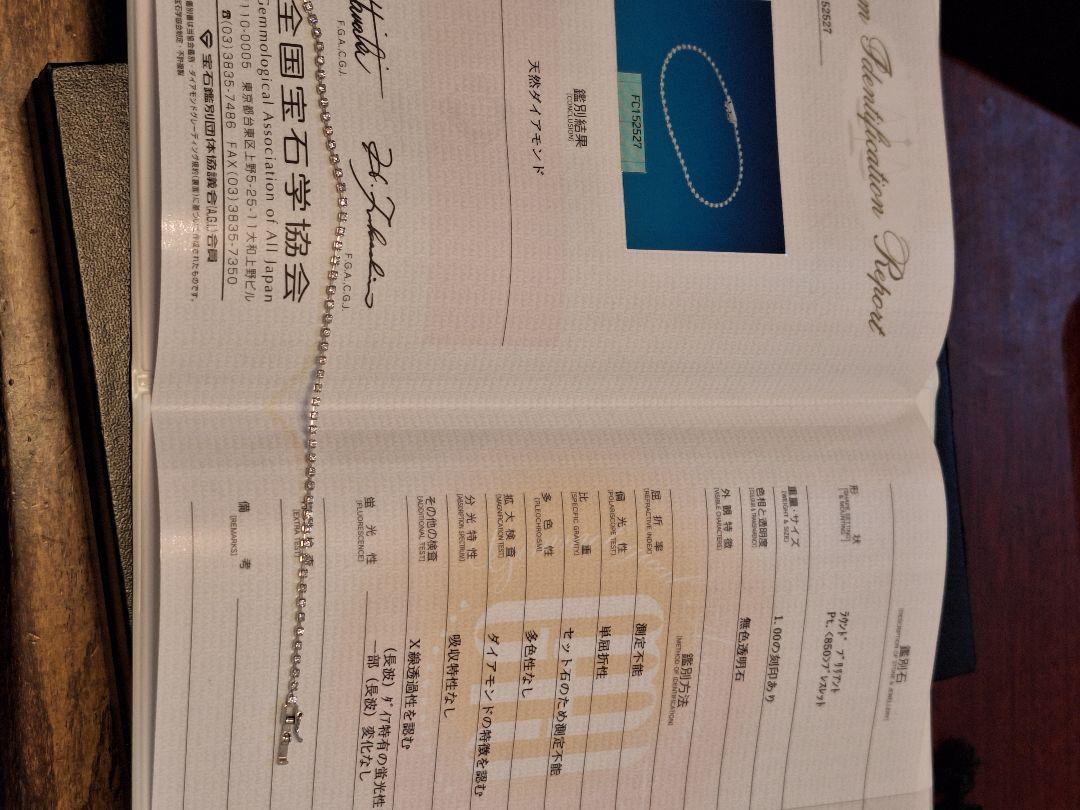 m Identification Report
52527
FC152527
鑑別結果
(CONCLUSION)
天然ダイアモンド
F.G.A.,C.G.J.
F.G.A.,C.G.J.
全国宝石学協会
Gemmological Association of All Japan
110-0005 東京都台東区上野5-25-11大和上野ビル
☎(03)3835-7486 FAX(03)3835-7350
宝石鑑別団体協議会(A.G.L)会員
鑑別石
形状
ラウンド ブリリアント
Pt.<850>ブレスレット
重量・サイズ
(WEIGHT & SIZE)
1.00の刻印あり
色相と透明度
(COLOR & TRANSPARENCY)
無色透明石
外観特徴
(VISIBLE CHARACTERS)
鑑別方法
(METHOD OF IDENTIFICATION)
屈折率
(REFRACTIVE INDEX)
測定不能
偏光性
(POLARISCOPE TEST)
単屈折性
比重
(SPECIFIC GRAVITY)
セット石のため測定不能
多色性
(PLEOCHROISM)
多色性なし
拡大検査
(MAGNIFICATION TEST)
ダイアモンドの特徴を認む
分光特性
(ABSORPTION SPECTRUM)
吸収特性なし
その他の検査
(ADDITIONAL TEST)
X線透過性を認む
蛍光性
(FLUORESCENCE)
(長波)ダイア特有の蛍光性
一部(長波)変化なし
(EXTRA TEST)
備考
(REMARKS)